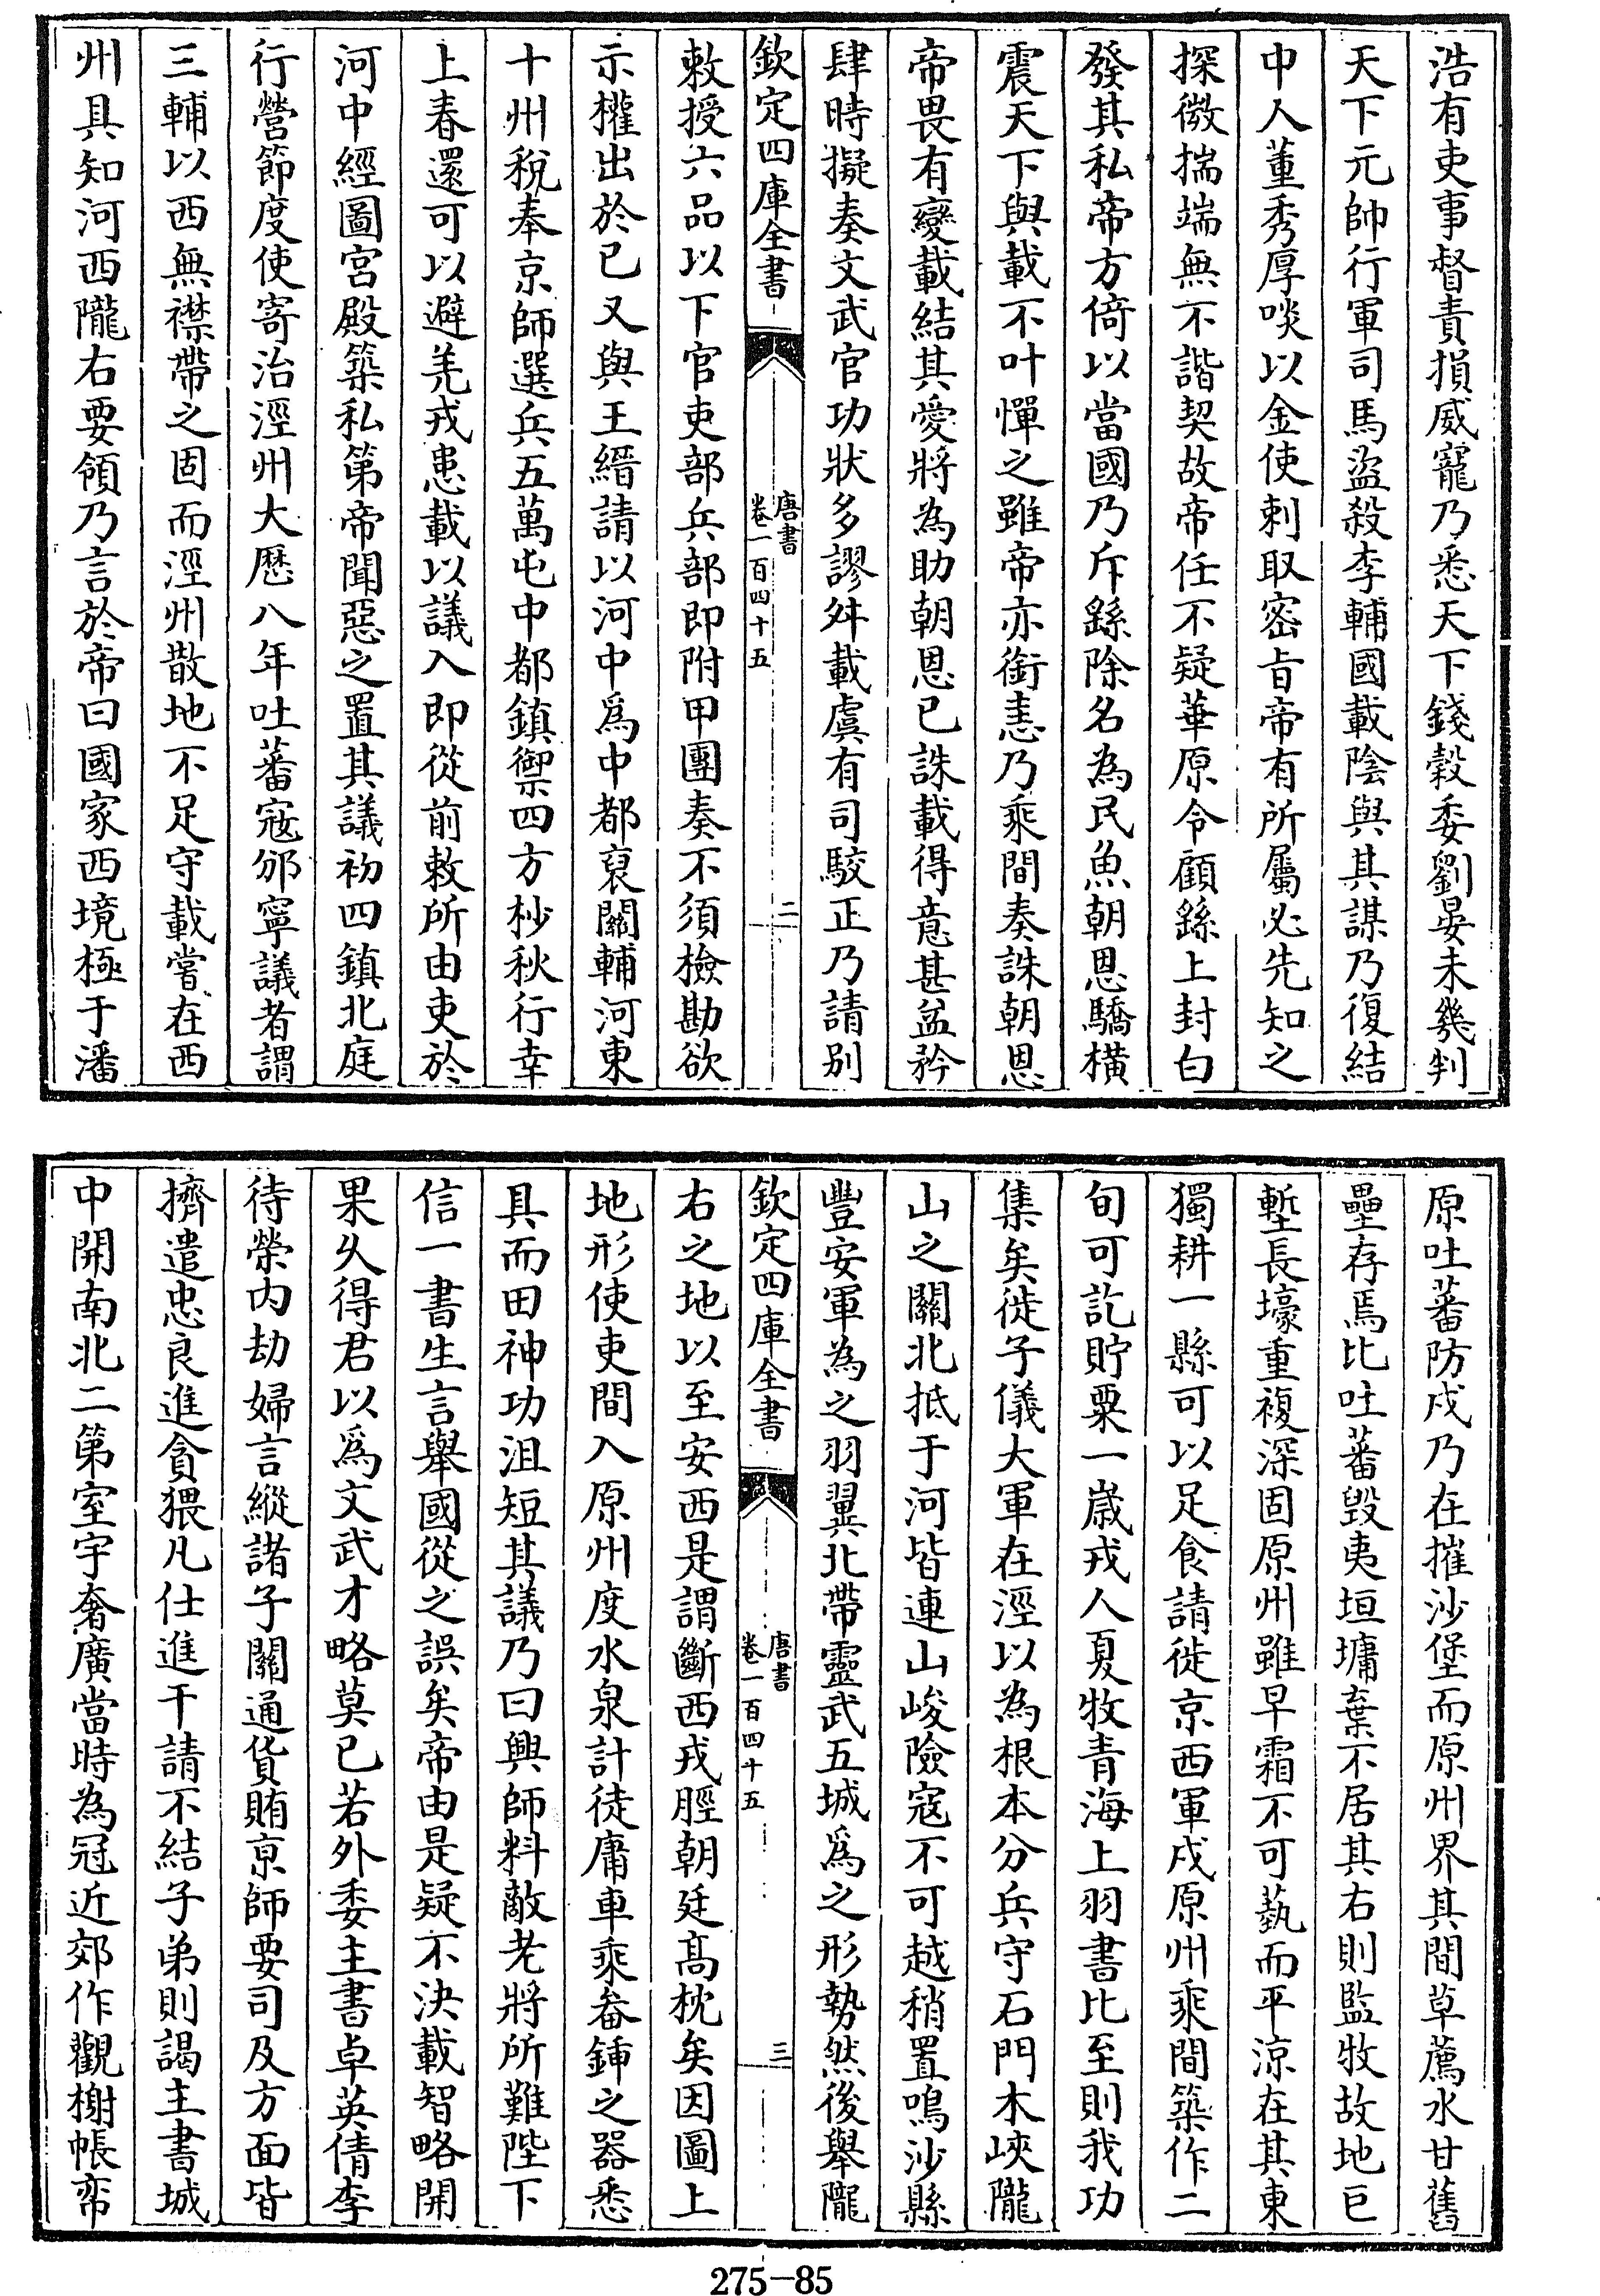 浩有吏事督責損威寵乃悉天下錢穀委劉晏未幾判
天下元帥行軍司馬盜殺李輔國載陰與其謀乃復結
中人董秀厚啖以金使刺取密旨帝有所屬必先知之
探微揣端無不諧契故帝任不疑華原令顧繇上封白
發其私帝方倚以當國乃斥繇除名為民魚朝恩驕橫
震天下與載不叶憚之雖帝亦銜恚乃乘間奏誅朝恩
帝畏有變載結其愛將為助朝恩已誅載得意甚益矜
肆時擬奏文武官功狀多謬舛載虞有司駮正乃請别
欽定四庫全書
唐書
卷一百四十五
二
敕授六品以下官吏部兵部即附甲團奏不須檢勘欲
示權出於已又與王縉請以河中爲中都裒關輔河東
十州稅奉京師選兵五萬屯中都鎮禦四方杪秋行幸
上春還可以避羌戎患載以議入即從前敕所由吏於
河中經圖宮殿築私第帝聞惡之置其議初四鎮北庭
行營節度使寄治涇州大歷八年吐蕃寇邠寧議者謂
三輔以西無襟帶之固而涇州散地不足守載嘗在西
州具知河西隴右要領乃言於帝曰國家西境極于潘
原吐蕃防戍乃在摧沙堡而原州界其間草薦水甘舊
壘存焉比吐蕃毀夷垣墉棄不居其右則監牧故地巨
塹長壕重複深固原州雖早霜不可蓺而平涼在其東
獨耕一縣可以足食請徙京西軍戍原州乘間築作二
旬可訖貯粟一歲戎人夏牧青海上羽書比至則我功
集矣徙子儀大軍在涇以為根本分兵守石門木峽隴
山之關北抵于河皆連山峻險寇不可越稍置鳴沙縣
豐安軍為之羽翼北帶靈武五城爲之形勢然後舉隴
欽定四庫全書
唐書
卷一百四十五
三
右之地以至安西是謂斷西戎脛朝廷高枕矣因圖上
地形使吏間入原州度水泉計徒庸車乘畚鍤之器悉
具而田神功沮短其議乃曰興師料敵老將所難陛下
信一書生言舉國從之誤矣帝由是疑不決載智略開
果久得君以爲文武才略莫已若外委主書卓英倩李
待榮内劫婦言縱諸子關通貨賄京師要司及方面皆
擠遣忠良進貪猥凡仕進干請不結子弟則謁主書城
中開南北二第室宇奢廣當時為冠近郊作觀榭帳帟
275-85